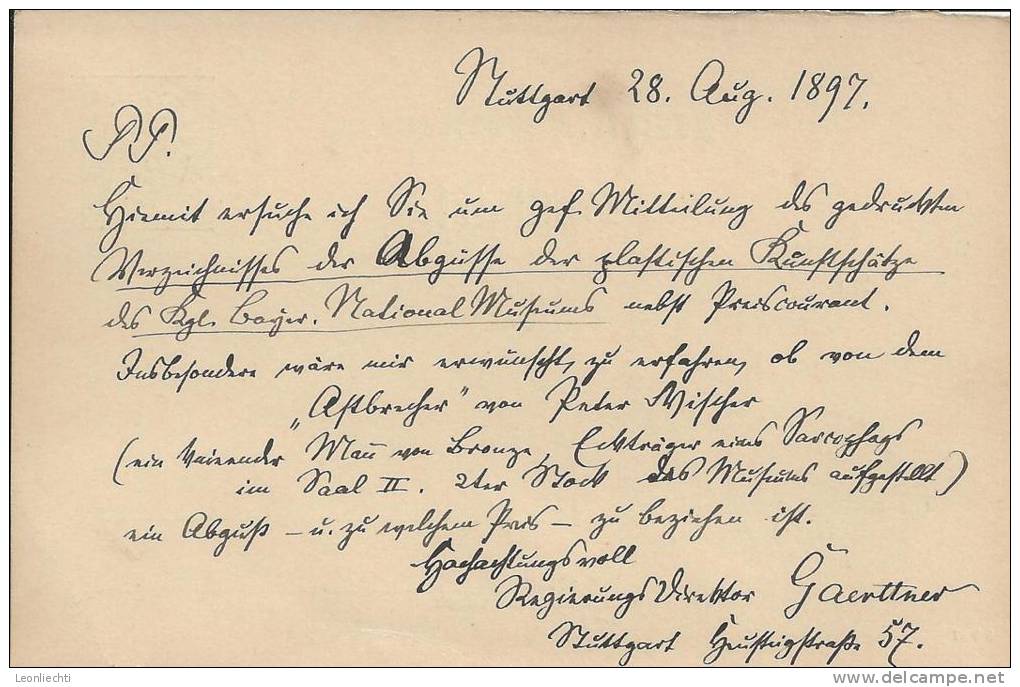 Stuttgart 28. Aug. 1897.
PP.
Hiemit ersuche ich Sie um gef. Mitteilung des gedruckten
Verzeichnisses der Abgüsse der plastischen Kunstschätze
des Kgl. Bayer. National Museums nebst Preiscourant.
Insbesondere wäre mir erwünscht, zu erfahren, ob von dem
„Astbrecher" von Peter Vischer
(ein knieender Mann von Bronze, Eckträger eines Sarcophags
im Saal II. 2ter Stock des Museums aufgestellt)
ein Abguß – u. zu welchem Preis – zu beziehen ist.
Hochachtungsvoll
Regierungs Direktor Gaerttner
Stuttgart Heusteigstraße 57.
Leonliechti
www.delcampe.net